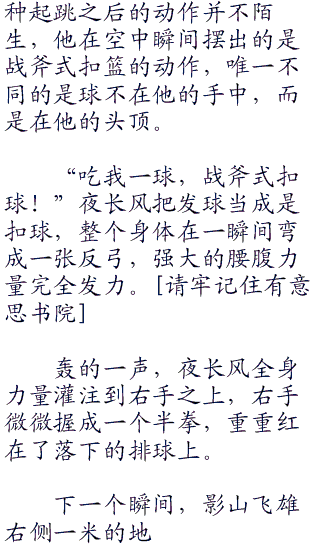 种起跳之后的动作并不陌
生，他在空中瞬间摆出的是
战斧式扣篮的动作，唯一不
同的是球不在他的手中，而
是在他的头顶。
“吃我一球，战斧式扣
球！”夜长风把发球当成是
扣球，整个身体在一瞬间弯
成一张反弓，强大的腰腹力
量完全发力。[请牢记住有意
思书院]
轰的一声，夜长风全身
力量灌注到右手之上，右手
微微握成一个半拳，重重红
在了落下的排球上。
下一个瞬间，影山飞雄
右侧一米的地